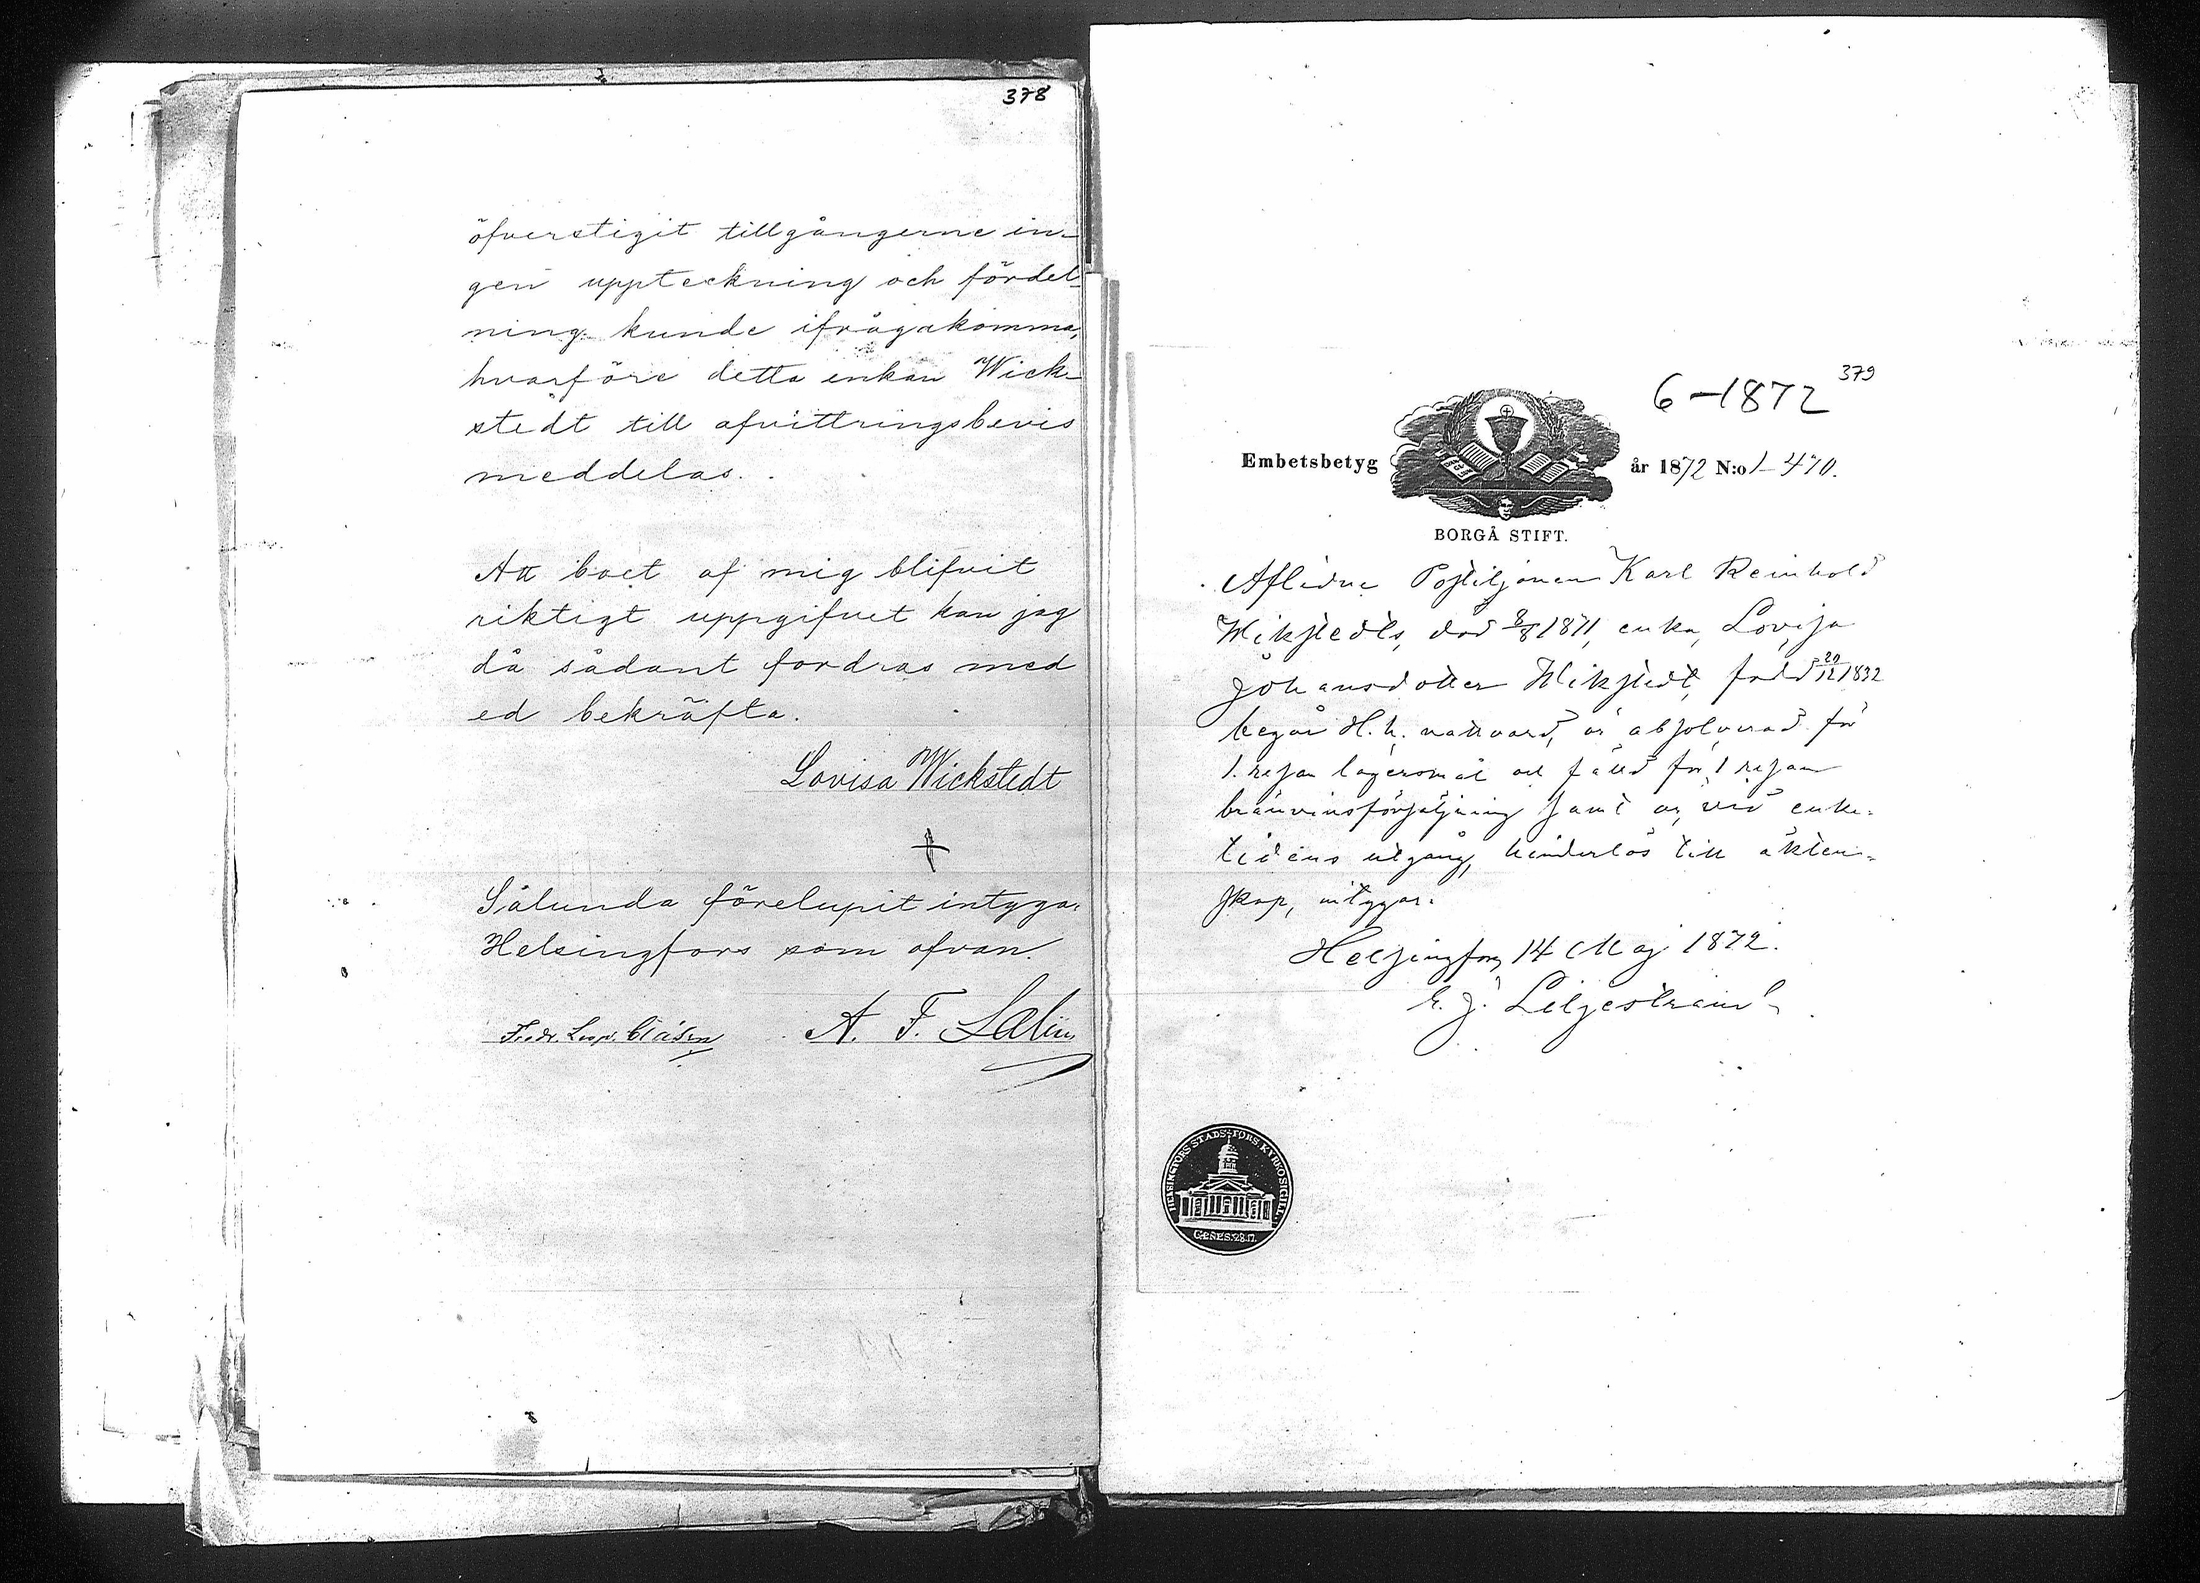 378
öfverstigit tillgångerne in-
gen uppteckning och fördel-
ning kunde ifrågakomma,
hvarföre detta enkan Wick-
stedt till afvittringsbevis
meddelas.
Att boet af mig blifvit
riktigt uppgifvet kan jag
då sådant fordras med
ed bekräfta.
Lovisa Wickstedt
Sålunda förelupit intyga.
Helsingfors som ofvan.
Fredr. Leop. Clásen A. F. Selin
379
6-1872
Embetsbetyg år 1872 N:o 1-470.
BORGÅ STIFT.
Aflidne Postiljonen Karl Reinhold
Wikstedts, död 8/8 1871, enka, Lovisa
Johansdotter Wikstedt, född 20/12 1832
begår H.h. nattvard, är absolverad för
1. resan lägersmål och fälld för 1 resan
bränvinsförsäljning samt är, vid enke-
tidens utgång, hinderlös till äkten-
skap, intygar.
Helsingfors 14 Maj 1872.
E. J. Liljestrand
HELSINGFORS STADS FÖRS. KYRKO SIGILL.
GENES. 28.17.